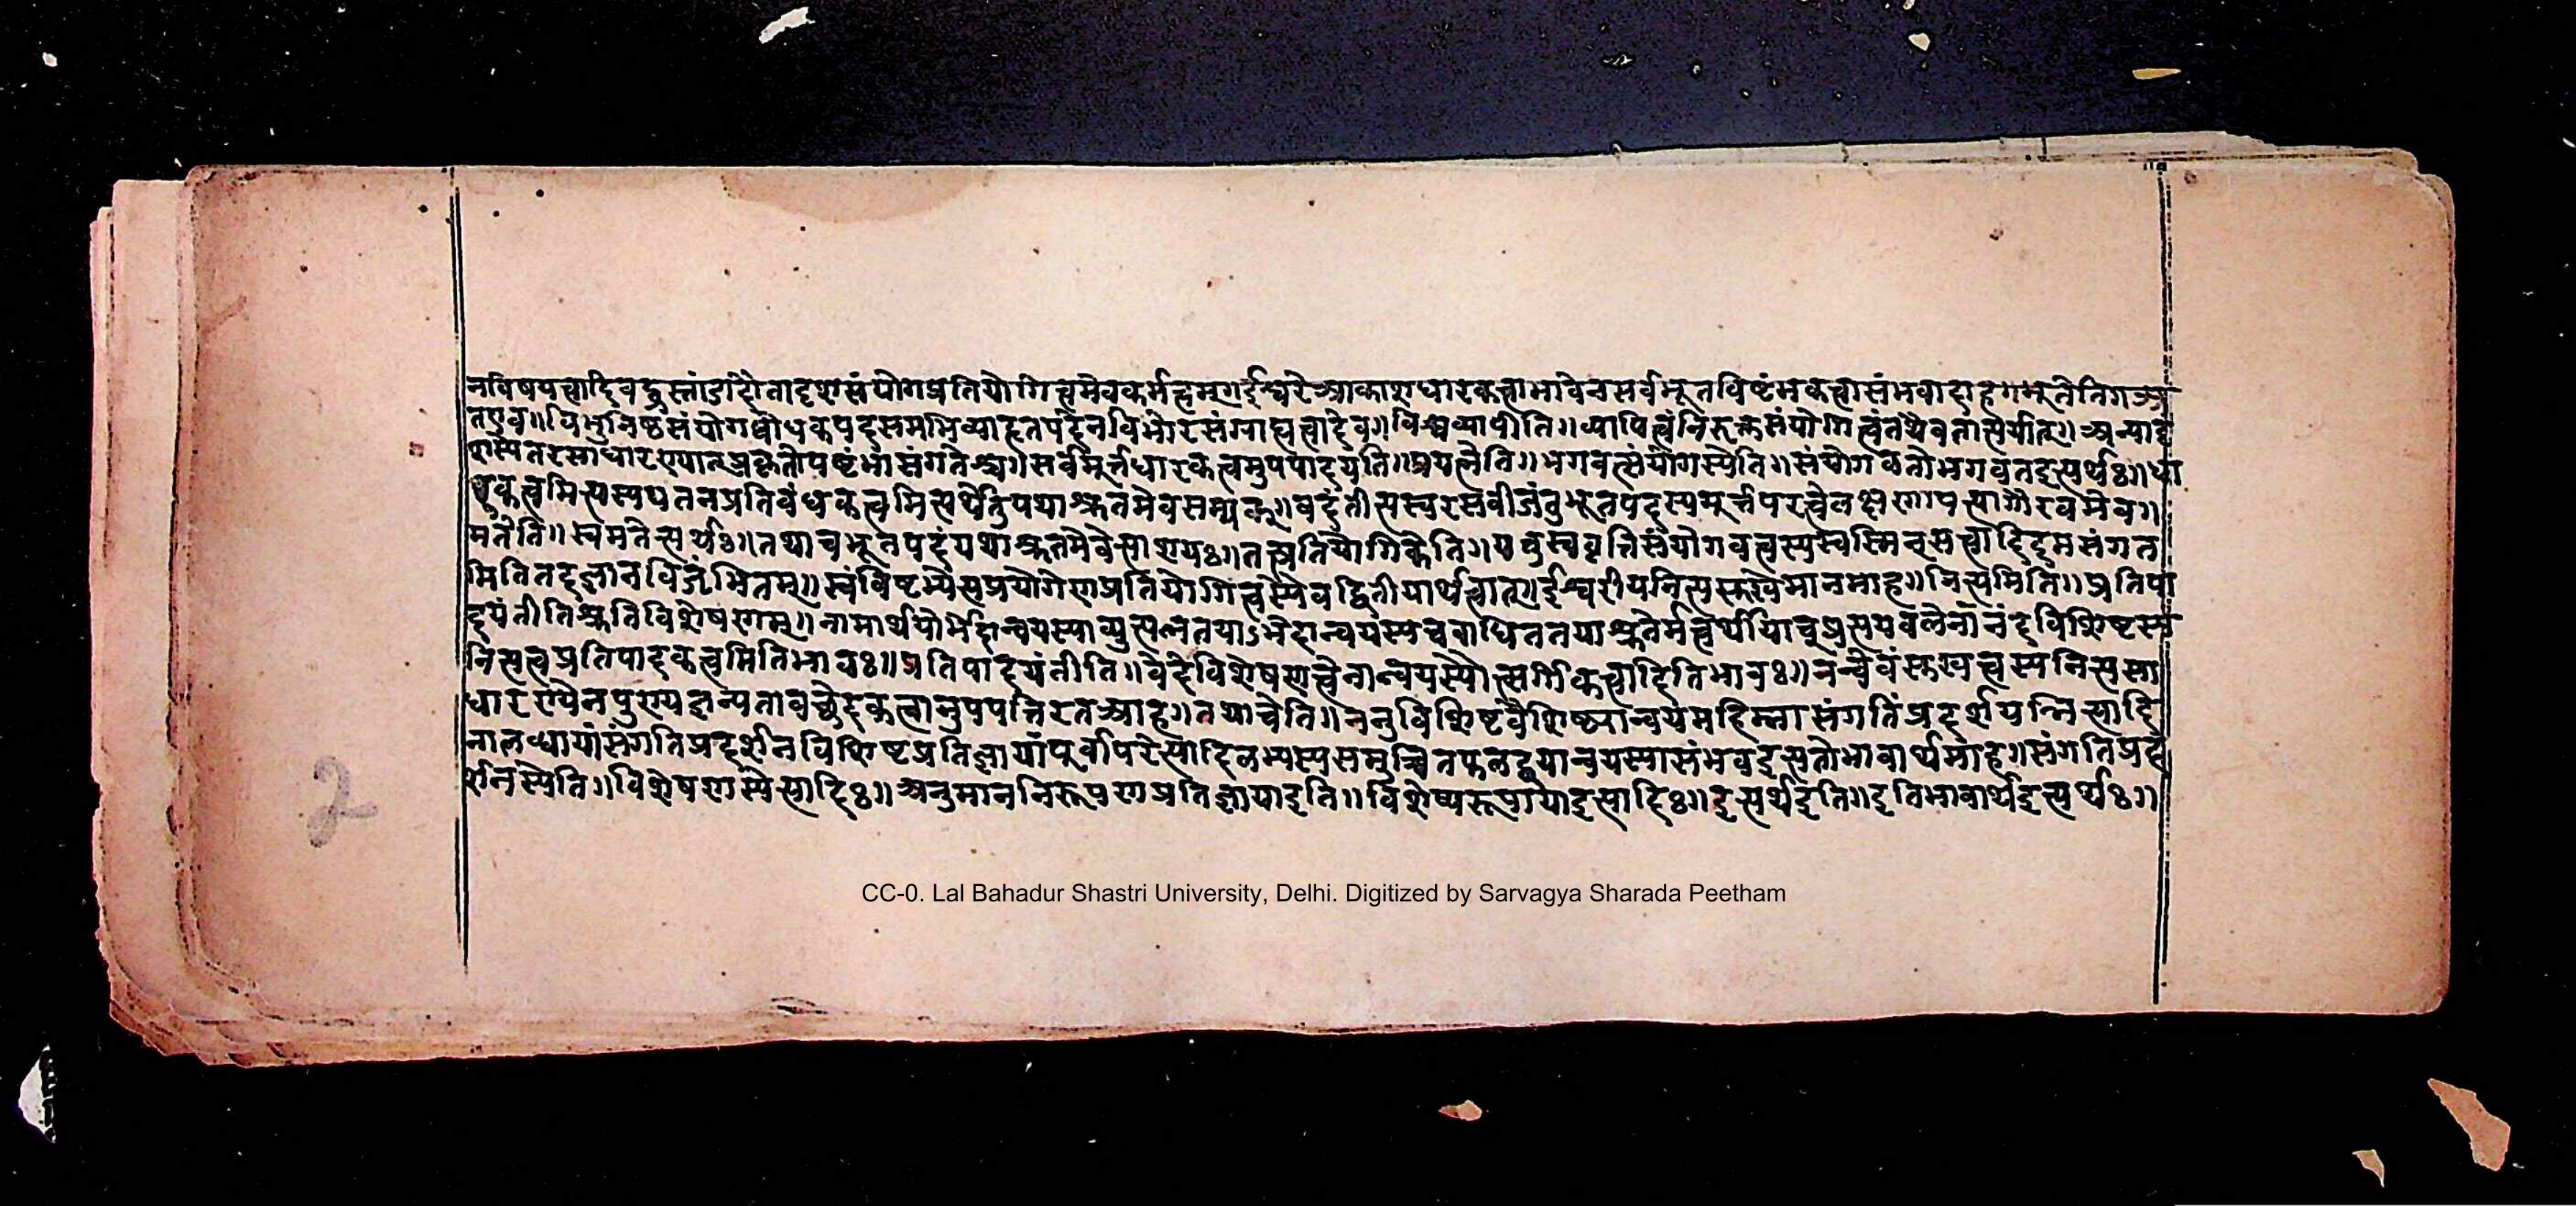 नविषयत्वादिवद्गुस्तांऽहितादृशसंयोगप्रतियोगित्वमेवकर्मत्वम्॥ईश्वरेआकाशधारकत्वाभावेनसर्वभूतविष्टंभकत्वासंभवादाहगभूतेतिगअ
तएव॥विभुनिष्ठसंयोगबोधकपदसमभिव्याहृतपदेनविभोरसंग्राह्यत्वादेव॥विश्वव्यापीति॥व्यापित्वंनिरुक्तसंयोगित्वंतथैवतात्पर्यात्॥अन्यादृ
शस्येतरसाधारण्यात्प्रकृतोपष्टंभासंगतेश्च॥सर्वमूर्त्तधारकत्वमुपपादयति॥प्रयत्नेति॥भगवत्संयोगस्येति॥संयोगवतोभगवतइत्यर्थः॥धा
रकत्वमित्यस्यपतनप्रतिबंधकत्वमित्यर्थेतुयथाश्रुतमेवसम्यक्॥वदंतीत्यस्वरसबीजंतुभूतपदस्यमूर्त्तपरत्वेलक्षणापत्त्यागौरवमेव॥
मतेति॥स्वमतेत्यर्थः॥तथाचभूतपदंयथाश्रुतमेवेत्याशयः॥तत्प्रतियोगिकेति॥यत्तुस्ववृत्तिसंयोगवत्त्वस्यस्वस्मिन्सत्त्वादिदमसंगत
मितितदज्ञानविजृंभितम्॥स्वंविष्टभ्येत्यप्रयोगेणप्रतियोगित्वस्यैवद्वितीयार्थत्वात्॥ईश्वरीयनित्यसुखेमानमाह॥नित्यमिति॥प्रतिपा
दयंतीतिश्रुतिविशेषणम्॥नामार्थयोर्भेदान्वयस्याव्युत्पन्नतयाऽभेदान्वयस्यचबाधिततयाश्रुतेर्मत्वर्थीयाच्प्रत्ययबलेनानंदविशिष्टस्य
नित्यत्वप्रतिपादकत्वमितिभावः॥प्रतिपादयंतीति॥वेदेविशेषणत्वेनान्वयस्यौत्सर्गिकत्वादितिभावः॥नन्वेवंसुखत्वस्यनित्यसा
धारण्येनपुण्यजन्यतावच्छेदकत्वानुपपत्तिरतआह॥तथाचेति॥ननुविशिष्टवैशिष्ट्यान्वयमहिम्नासंगतिंप्रदर्शयन्नित्यादि
नालब्धायांसंगतिप्रदर्शनविशिष्टप्रतिज्ञायांपूर्वापरेत्यादिलभ्यस्यसमुच्चितफलद्वयान्वयस्यासंभवइत्यतोभावार्थमाह॥संगतिप्रद
र्शनस्येति॥विशेषणस्येत्यादिः॥अनुमाननिरूपणप्रतिज्ञायाइति॥विशेष्यरूपायाइत्यादिः॥इत्यर्थइति॥इतिभावार्थइत्यर्थः॥
2
CC-0. Lal Bahadur Shastri University, Delhi. Digitized by Sarvagya Sharada Peetham